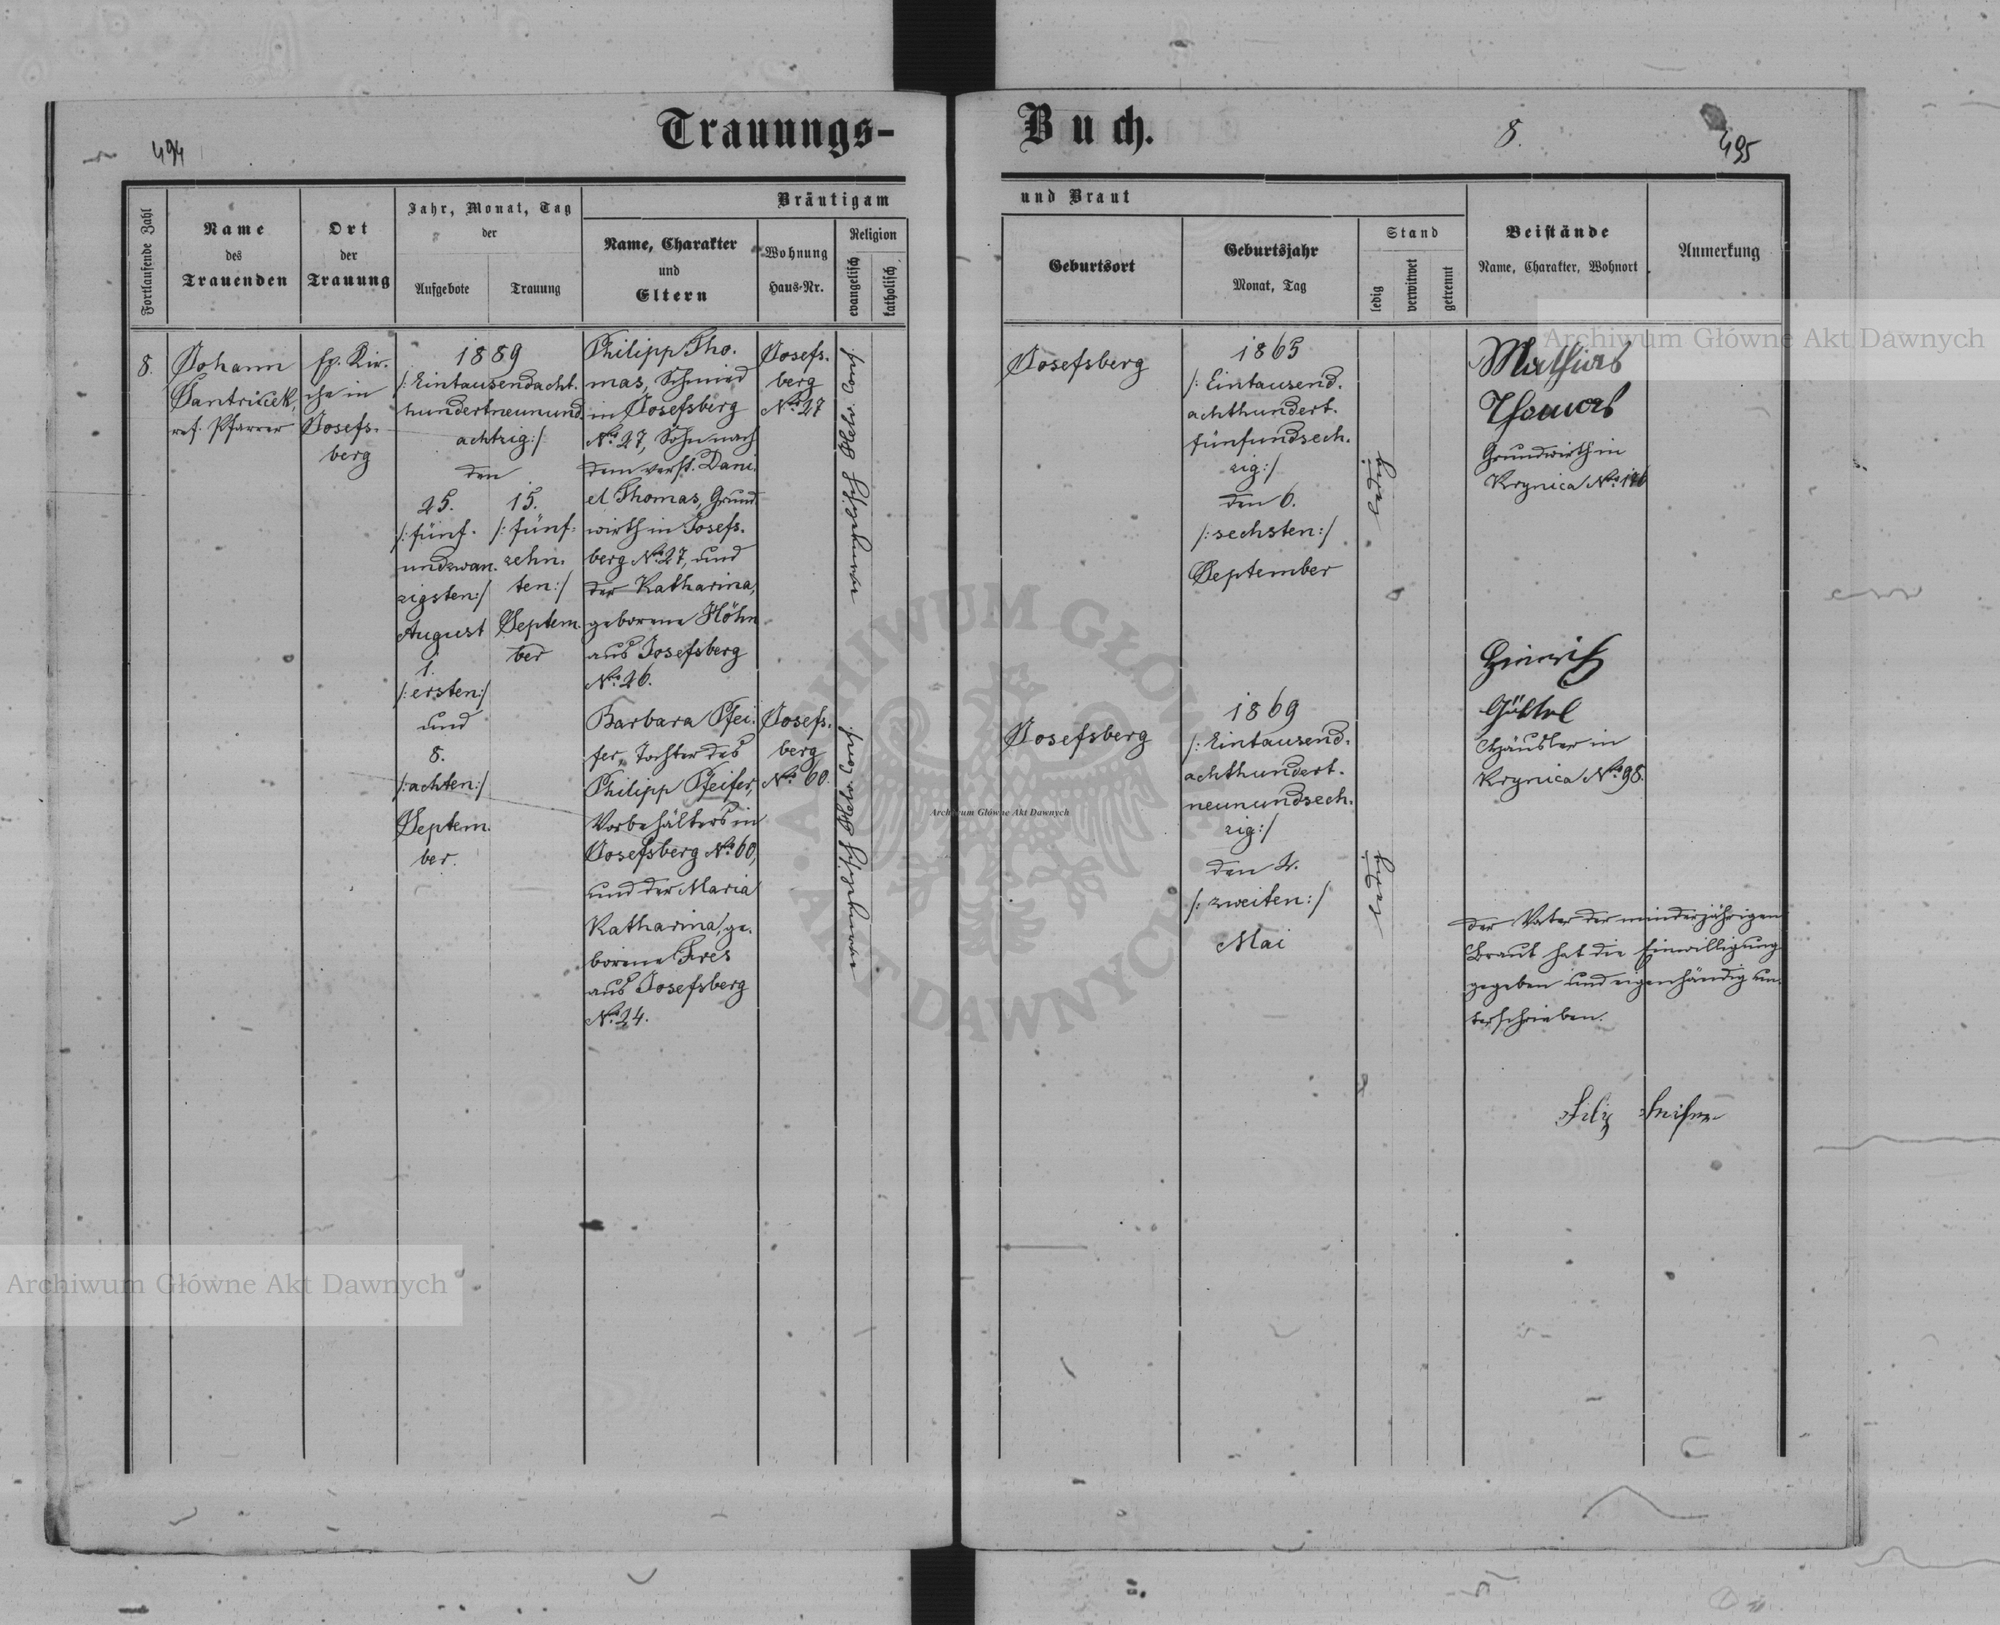 Trauungs-
Buch.
494
8.
495
Fortlaufende Zahl
Name
des
Trauenden
Ort
der
Trauung
Jahr, Monat, Tag
der
Aufgebote
Trauung
Bräutigam
Name, Charakter
und
Eltern
Wohnung
Haus-Nr.
Religion
evangelisch
katholisch
und Braut
Geburtsort
Geburtsjahr
Monat, Tag
Stand
ledig
verwitwet
getrennt
Beistände
Name, Charakter, Wohnort
Anmerkung
8.
Johann
ref. Pfarrer
ev. Kir-
che in
Josefs-
berg
1889
/: Eintausendacht-
hundertneunund
achtzig :/
den
25.
/: fünf-
undzwan-
zigsten :/
August
1.
/: ersten :/
und
8.
/: achten :/
Septem-
ber.
15.
/: fünf-
zehn-
ten :/
Septem-
ber
Philipp Tho-
mas, Schmied
in Josefsberg
No. 27, Sohn nach
dem verst. Dani-
el Thomas, Grund-
wirth in Josefs-
berg No. 27, und
der Katharina,
geborene Höhn
aus Josefsberg
No. 26.
Josefs-
berg
No. 27
evangelisch Helv. Conf.
Josefsberg
1865
/: Eintausend-
achthundert-
fünfundsech-
zig :/
den 6.
/: sechsten :/
September
ledig
Mathias
Thomas
Grundwirth in
Krynica No. 126
Barbara Pfei-
fer, Tochter des
Philipp Pfeifer,
Vorbehälters in
Josefsberg No. 60,
und der Maria
Katharina, ge-
borene
aus Josefsberg
No. 24.
Josefs-
berg
No. 60.
evangelisch Helv. Conf.
Josefsberg
1869
/: Eintausend-
achthundert-
neunundsech-
zig :/
den 2.
/: zweiten :/
Mai
ledig
Heinrich
Häusler in
Krynica No. 98.
Der Vater der minderjährigen
Braut hat die Einwilligung
gegeben und eigenhändig un-
terschrieben.
Archiwum Główne Akt Dawnych
Archiwum Główne Akt Dawnych
Archiwum Główne Akt Dawnych
ARCHIWUM GŁÓWNE
AKT DAWNYCH